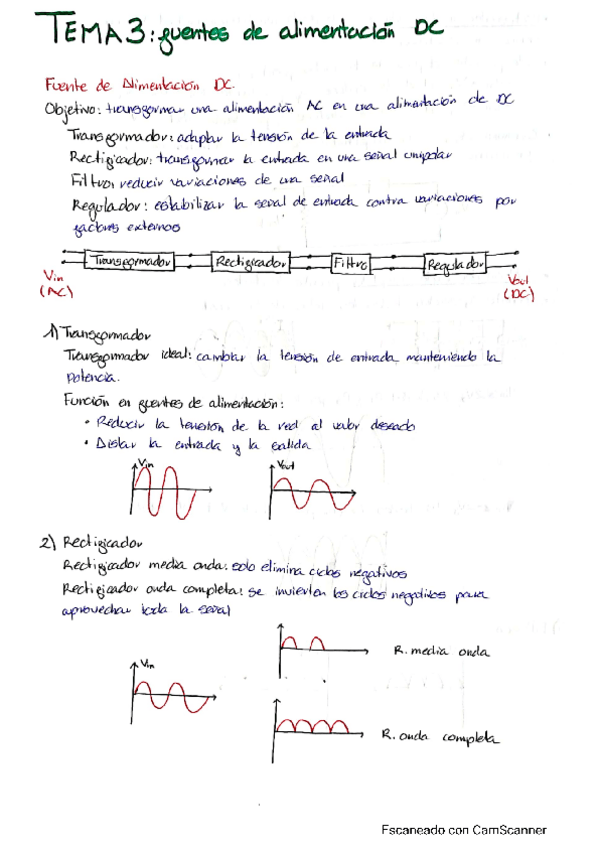 TEMA 3: fuentes de alimentación DC
Fuente de Alimentación DC.
Objetivo: transformar una alimentación AC en una alimentación de DC
Transformador: adaptar la tensión de la entrada
Rectificador: transformar la entrada en una señal unipolar
Filtro: reducir variaciones de una señal
Regulador: estabilizar la señal de entrada contra variaciones por
factores externos
Transformador Rectificador Filtro Regulador
Vin Vout
(AC) (DC)
1) Transformador
Transformador ideal: cambiar la tensión de entrada manteniendo la
potencia.
Función en fuentes de alimentación:
• Reducir la tensión de la red al valor deseado
• Aislar la entrada y la salida
Vin Vout
2) Rectificador
Rectificador media onda: solo elimina ciclos negativos
Rectificador onda completa: se invierten los ciclos negativos para
aprovechar toda la señal
R. media onda
Vin
R. onda completa
Escaneado con CamScanner